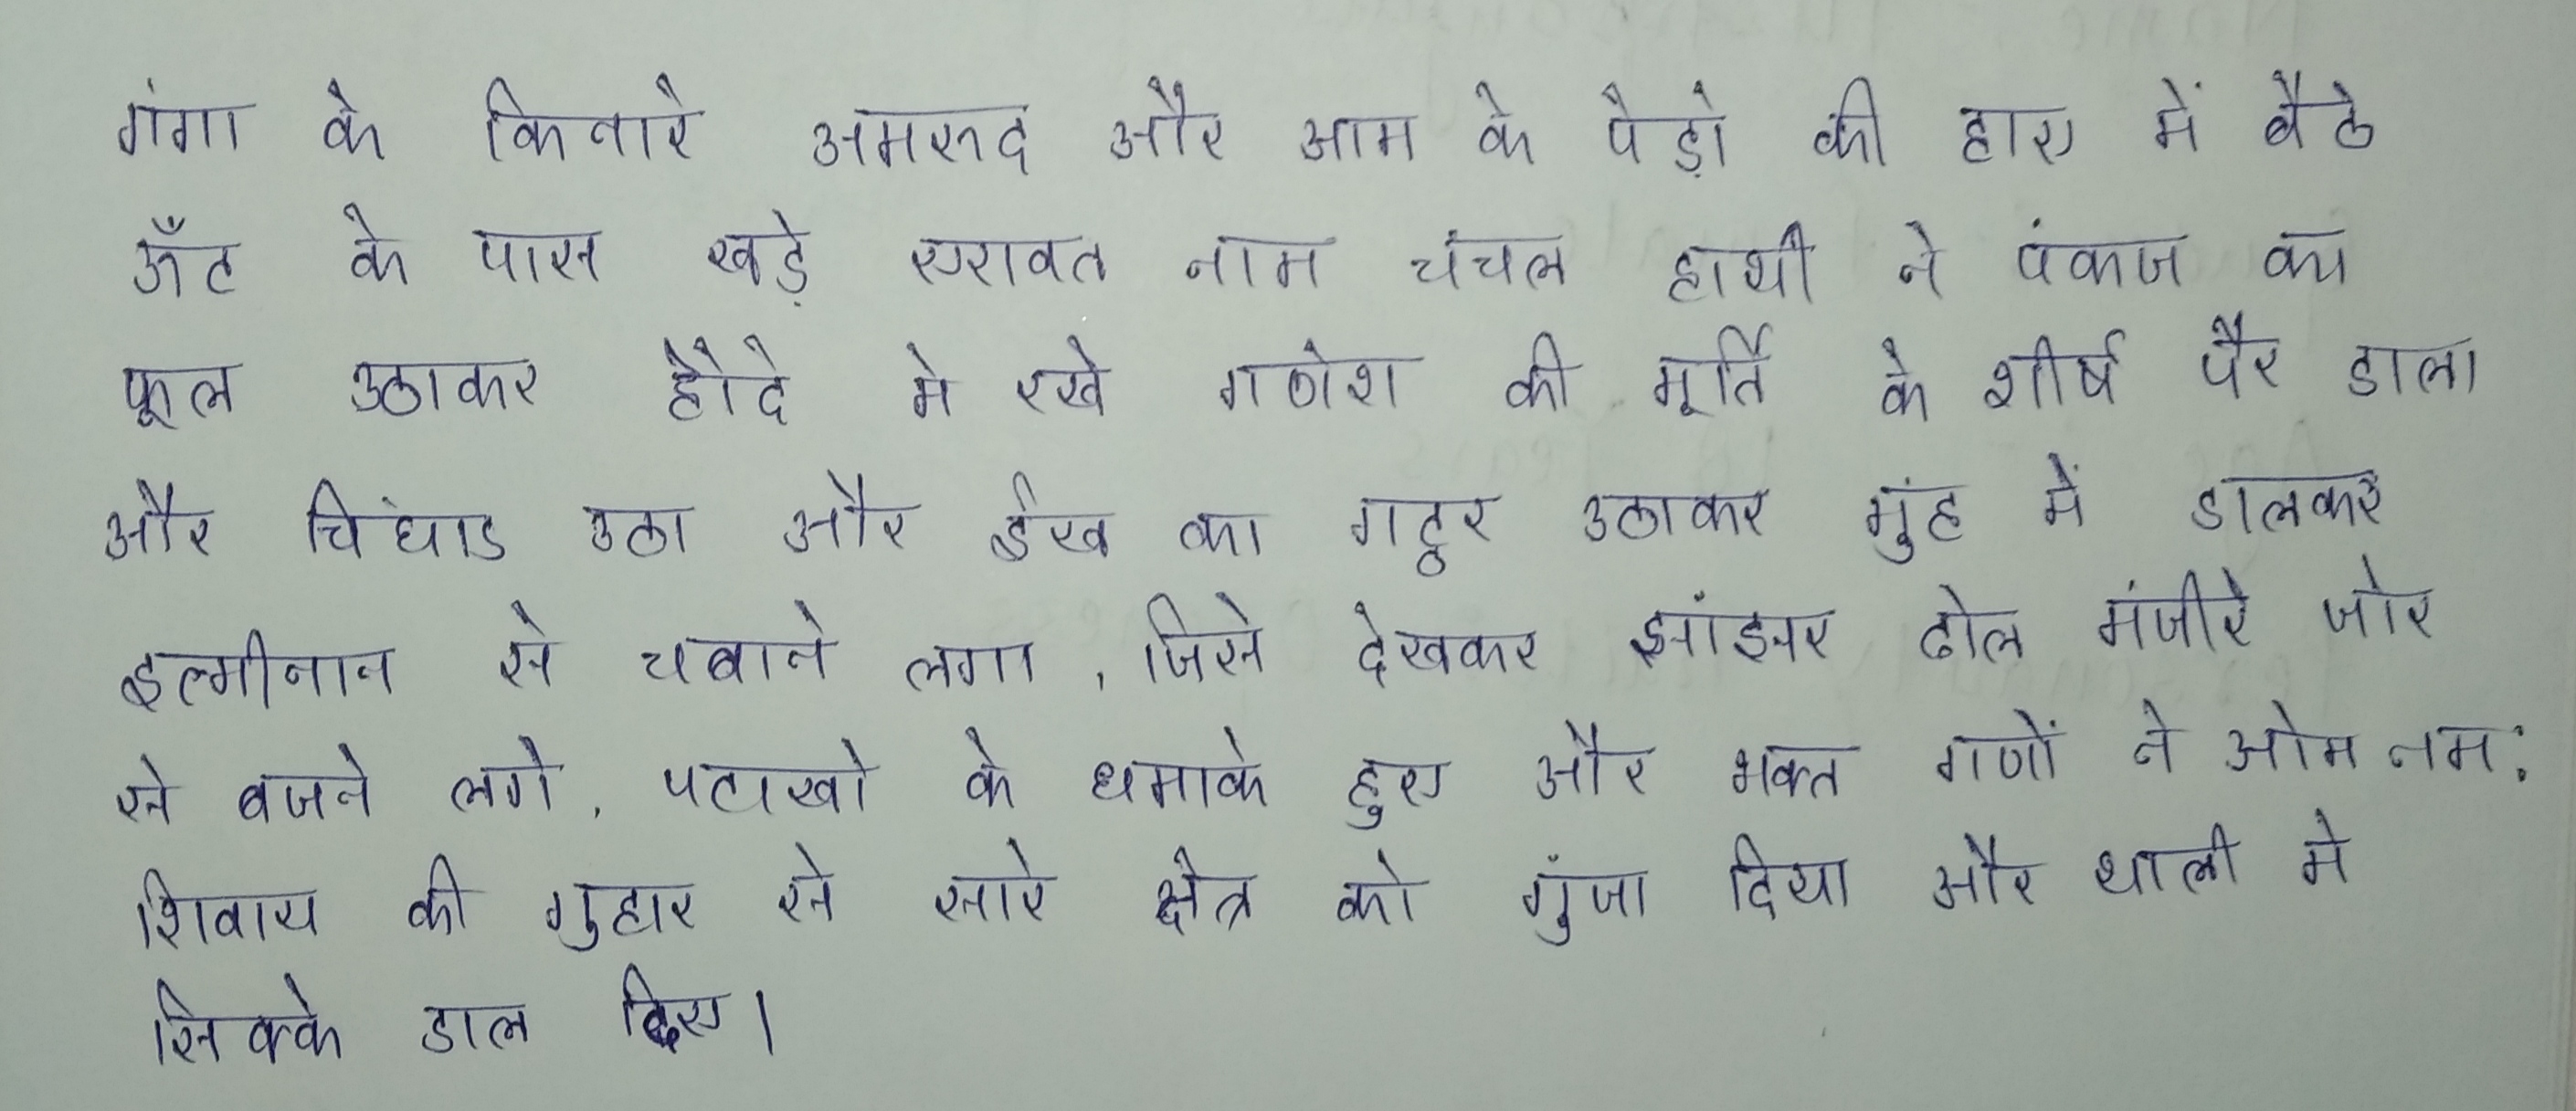 गंगा के किनारे अमरुद और आम के पेड़ो की हाए में बैठे
ऊँट के पास खड़े एरावत नाम चंचल हाथी ने पंकज का
फूल उठाकर हौदे मे रखे गणेश की मूर्ति के शीर्ष पैर डाला
और चिंघाड उठा और ईख का गट्ठर उठाकर मुंह में डालकर
इत्मीनान से चबाने लगा, जिसे देखकर झांझर ढोल मंजीरे जोर
से बजने लगे, पटाखो के धमाके हुए और भक्त गणों ने ओम नम:
शिवाय की गुहार से सारे क्षेत्र को गुंजा दिया और थाली मे
सिक्के डाल दिए।